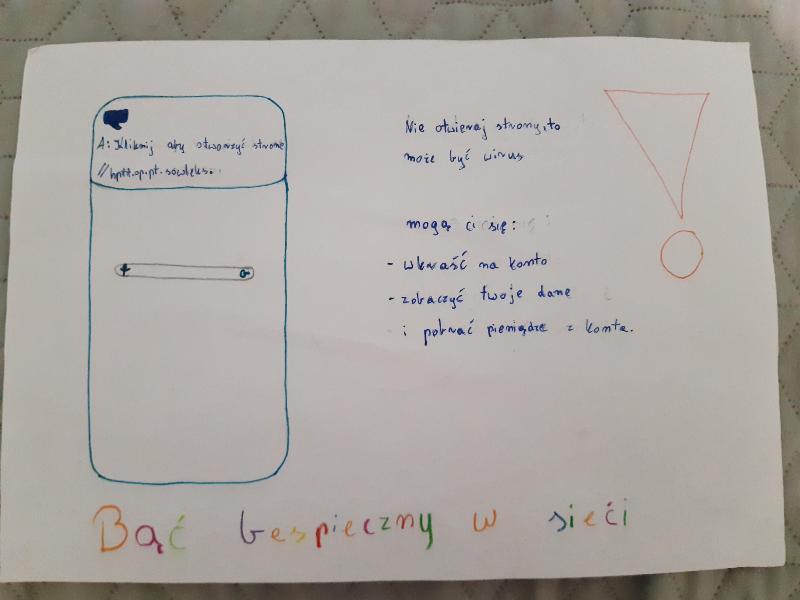 A: Kliknij aby otworzyć strone
//hptt.op.pt.sowleks..
Nie otwieraj strony, to
może być wirus
mogą ci się:
- wkraść na konto
- zobaczyć twoje dane
i pobrać pieniądze z konta.
Bąć bespieczny w sieći